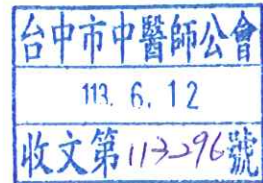 台中市中醫師公會
113. 6. 12
收文第113296號